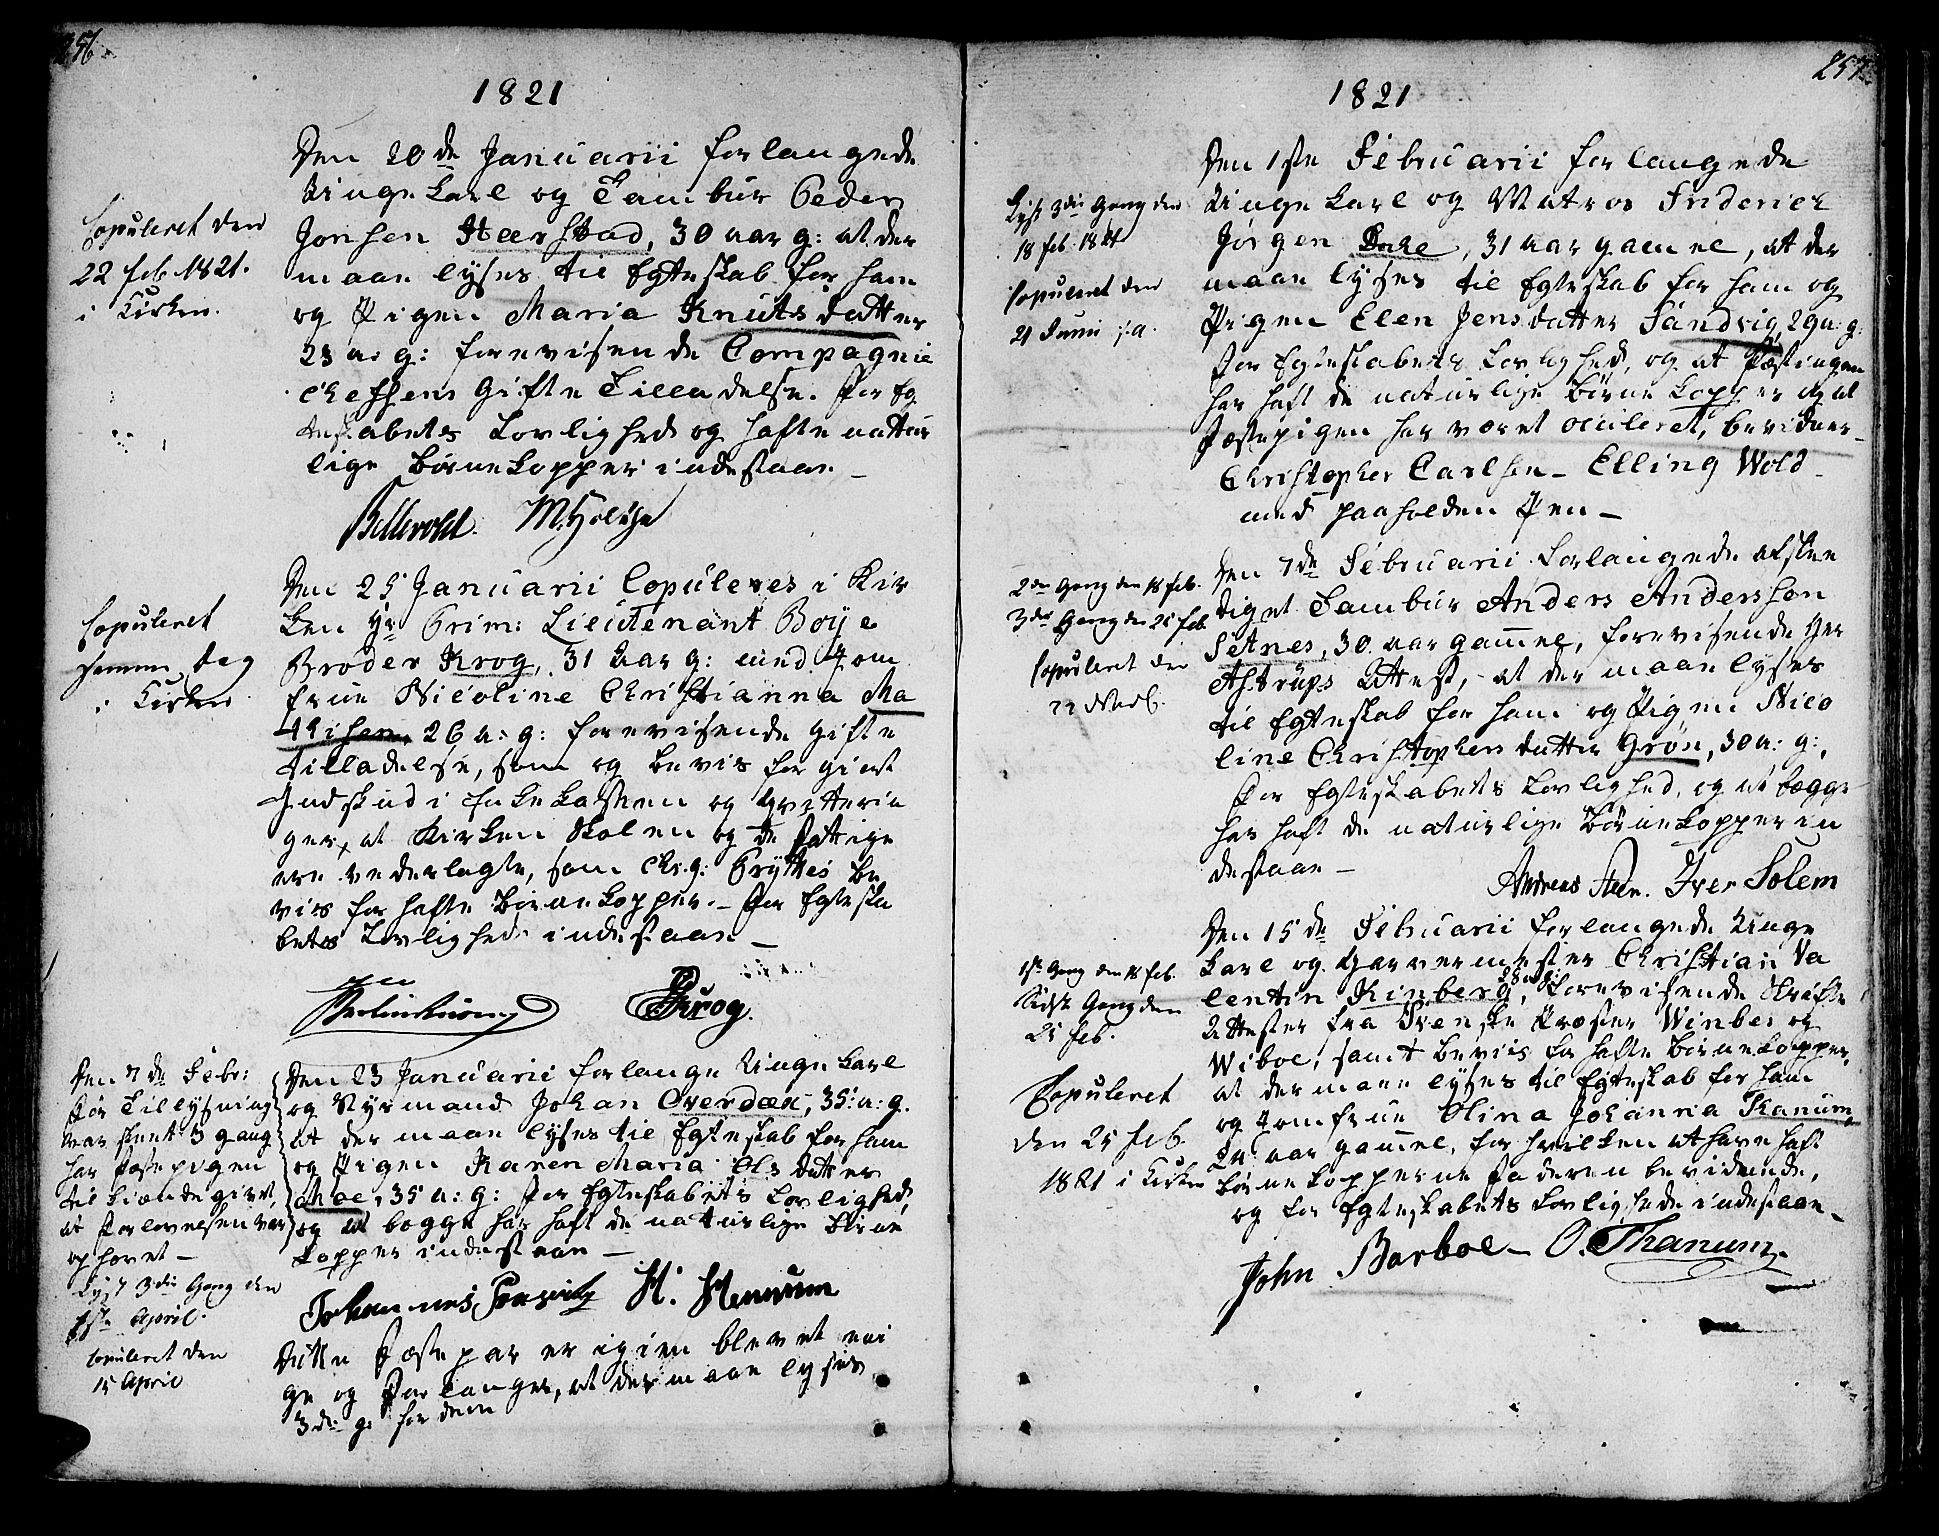 256
1821
Copuleret den
22 feb 1821.
i Kirken.
Den 20de Januarii forlangede
Unge Karl og Tambur Peder
Jonsen Heerstad, 30 aar g: at der
maae lyses til Egteskab for ham
og Pigen Maria Knutsdatter
23 a: g: forevisende Compagnie
Cheffens Gifte Tilladelse. For Eg
teskabets Lovlighed og hafte natur
lige Børnekopper indestaae
Bellevold. M. Holthe
Copuleret
samme dag
i Kirken
Den 25 Januarii Copuleres i Kir
ken Hr Prim: Lieutenant Boye
Broder Krog, 31 Aar g: med Jom
frue Nicoline Christianna Ma
thisen 26 a: g: forevisende Gifte
tilladelse, som og bevis for giort
Indskud i Enkekassen og Qvitterin
ger, at Kirken Skolen og de Fattige
ere vederlagte, som Chr. g: Gryttes be
vis for hafte Børnekopper. For Egteska
bets Lovlighed indestaae
Krog.
Den 7de Febr:
før Tillysning
var skeet 3 gang
har Fæstepigen
tilkiendegivet,
at Forlovelsen var
ophævet
Lyst 3die Gang den
1ste April.
Copuleret den
15 April
Den 23 Januarii forlange Unge Karl
og Nyrmand Johan Overdæk, 35 a: g.
at der maae lyses til Egteskab for ham
og Pigen Karen Maria Olsdatter
Moe, 35 a: g: For Egteskabets Lovlighed,
og at begge har haft de naturlige Børne
kopper indestaae
Johannes H. Hennum
Dette Fæstepar er igien blevet eni
ge og Forlanger, at der maae lyses
3de g: for dem
257
1821
Lyst 3die Gang den
18 feb. 1821
Copuleret den
21 Junii s. a.
Den 1ste Februarii forlangede
Unge Karl og Matros Friderich
Jørgen Dahl, 31 aar gamel, at der
maae lyses til Egteskab for ham og
Pigen Elen Jensdatter Sandvig, 29 a: g:
For Egteskabets Lovlighed, og at Fæstingen
har haft de naturlige Børne Kopper og at
Fæstepigen har været oculeret, bevidner
Christopher Carlsen - Elling Wold
med paaholden Pen
2den Gang den 18 feb.
3die Gang den 25 feb.
Copuleret den
22 Mart.
Den 7de Februarii Forlangede afskee
diget Tambur Anders Anderssøn
Setnes, 30 aar gamel, forevisende Hr
Astrups Attest, at der maae lyses
til Egteskab for ham og Pigen Nico
line Christophersdatter Grøn, 30 a: g:,
For Egteskabets Lovlighed, og at begge
har haft de naturlige Børnekopper in
destaae
Andreas Iver Solem
1ste Gang den 18 feb.
Sidste Gang den
25 feb.
Copuleret
den 25 feb.
1821 i Kirken
Den 15de Februarii forlangede Unge
Karl og Garvermester Christian Va
lentin Kinberg, 28 a: g: forevisende Skrifte
Attester fra Svenske Præster Winber og
Wiboe, samt beviis for hafte Børnekopper,
at der maae lyses til Egteskab for ham
og Jomfrue Olina Johanna Kanum,
24 aar gamel, for hvilken at have haft
Børnekopperne Faderen bevidnede,
og for Egteskabets Lovlighed indestaae
John Barboe - O. Thanum.